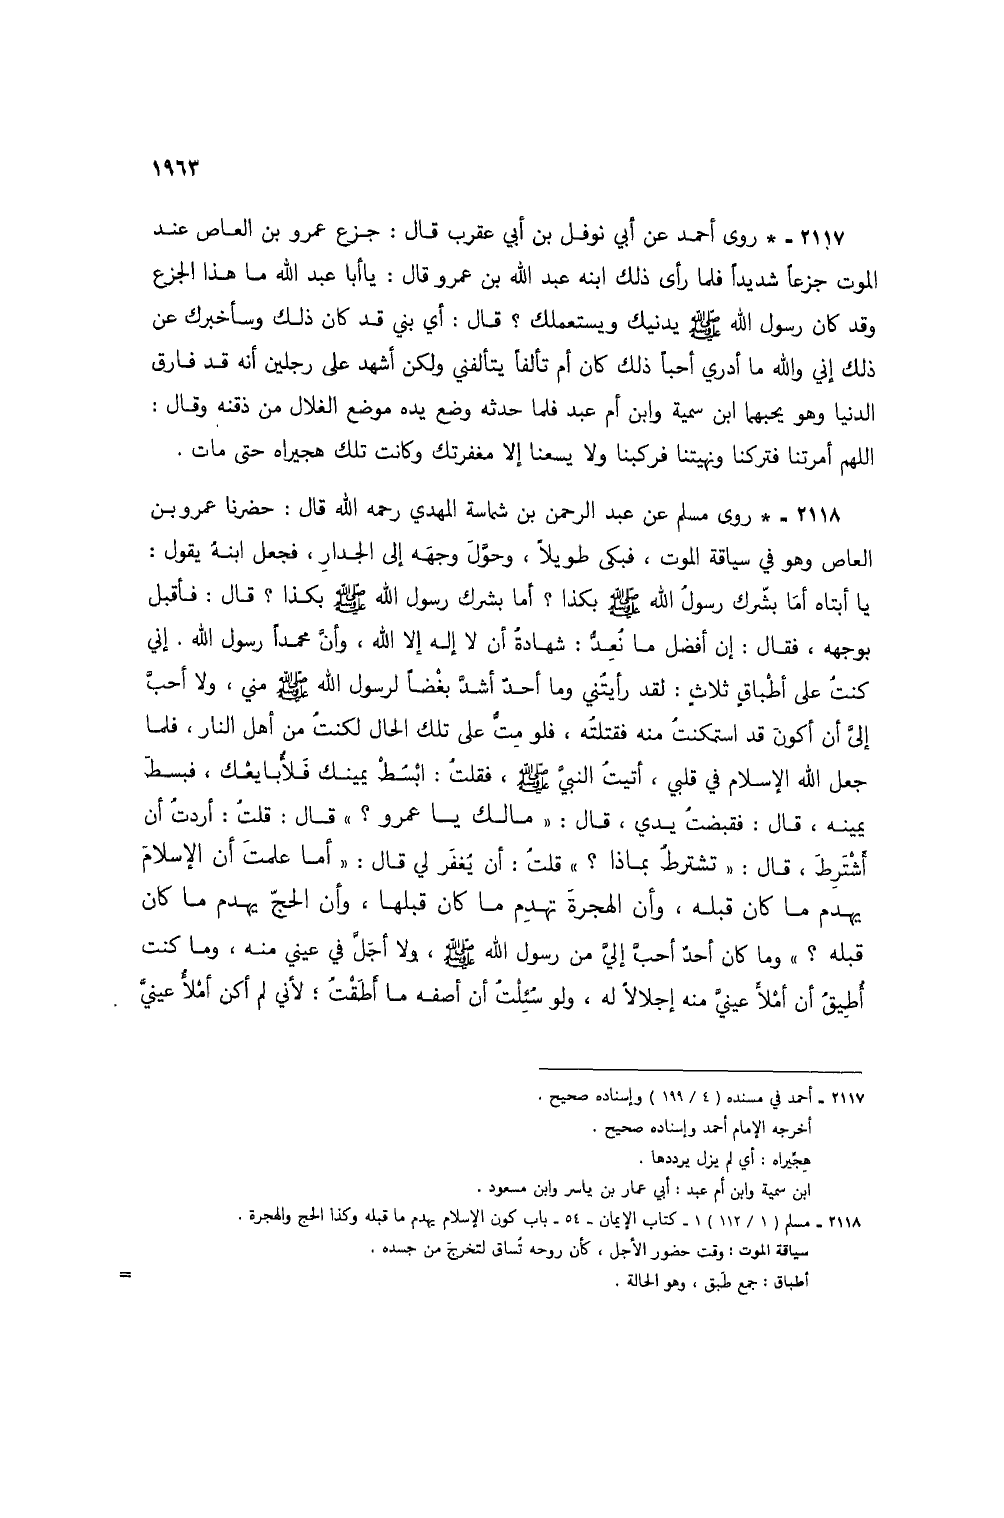 ١٩٦٣
٢١١٧ - * روى أحمد عن أبي نوفل بن أبي عقرب قال : جزع عمرو بن العاص عند
الموت جزعاً شديداً فلما رأى ذلك ابنه عبد الله بن عمرو قال : ياأبا عبد الله ما هذا الجزع
وقد كان رسول الله ﷺ يدنيك ويستعملك ؟ قال : أي بني قد كان ذلك وسأخبرك عن
ذلك إني والله ما أدري أحباً ذلك كان أم تألفاً يتألفني ولكن أشهد على رجلين أنه قد فارق
الدنيا وهو يحبهما ابن سمية وابن أم عبد فلما حدثه وضع يده موضع الغلال من ذقنه وقال :
اللهم أمرتنا فتركنا ونهيتنا فركبنا ولا يسعنا إلا مغفرتك وكانت تلك هجيراه حتى مات .
٢١١٨ - * روى مسلم عن عبد الرحمن بن شماسة المهدي رحمه الله قال : حضرنا عمرو بن
العاص وهو في سياقة الموت ، فبكى طويلاً ، وحوَّلَ وجهَه إلى الجدارِ ، فجعل ابنهُ يقول :
يا أبتاه أمَا بشّرك رسولُ الله ﷺ بكذا ؟ أما بشرك رسول الله ﷺ بكذا ؟ قال : فأقبل
بوجهه ، فقال : إن أفضل ما نُعِدُّ : شهادةُ أن لا إله إلا الله ، وأنَّ محمداً رسول الله . إني
كنتُ على أطْباقٍ ثلاثٍ : لقد رأيتُني وما أحدٌ أشدَّ بغْضاً لرسول الله ﷺ مني ، ولا أحبَّ
إليَّ أن أكونَ قد استمكنتُ منه فقتلتُه ، فلو مِتُّ على تلك الحال لكنتُ من أهل النار ، فلما
جعل الله الإسلام في قلبي ، أتيتُ النبيَّ ﷺ ، فقلتُ : ابْسُطْ يمينك فَلأُبايعْك ، فبسطَ
يمينه ، قال : فقبضتُ يدي ، قال : « مالك يا عمرو ؟ » قال : قلتُ : أردتُ أن
أَشْتَرِطَ ، قال : « تشترطُ بماذا ؟ » قلتُ : أن يُغفَر لي قال : « أما علمتَ أن الإسلامَ
يهدم ما كان قبله ، وأن الهجرةَ تهدِم ما كان قبلها ، وأن الحجّ يهدم ما كان
قبله ؟ » وما كان أحدٌ أحبَّ إليَّ من رسول الله ﷺ ، ولا أجَلَّ في عيني منه ، وما كنت
أُطِيقُ أن أمْلأ عينيَّ منه إجلالاً له ، ولو سُئِلْتُ أن أصفه ما أَطَقْتُ ؛ لأني لم أكن أمْلأُ عينيَّ
٢١١٧ - أحمد في مسنده ( ٤ / ١٩٩ ) وإسناده صحيح .
أخرجه الإمام أحمد وإسناده صحيح .
هِجِّيراه : أي لم يزل يرددها .
ابن سمية وابن أم عبد : أبي عمار بن ياسر وابن مسعود .
٢١١٨ - مسلم ( ١ / ١١٢ ) ١ - كتاب الإيمان - ٥٤ - باب كون الإسلام يهدم ما قبله وكذا الحج والهجرة .
سياقة الموت : وقت حضور الأجل ، كأن روحه تُساق لتخرجَ من جسده .
أطباق : جمع طَبق ، وهو الحالة .
=